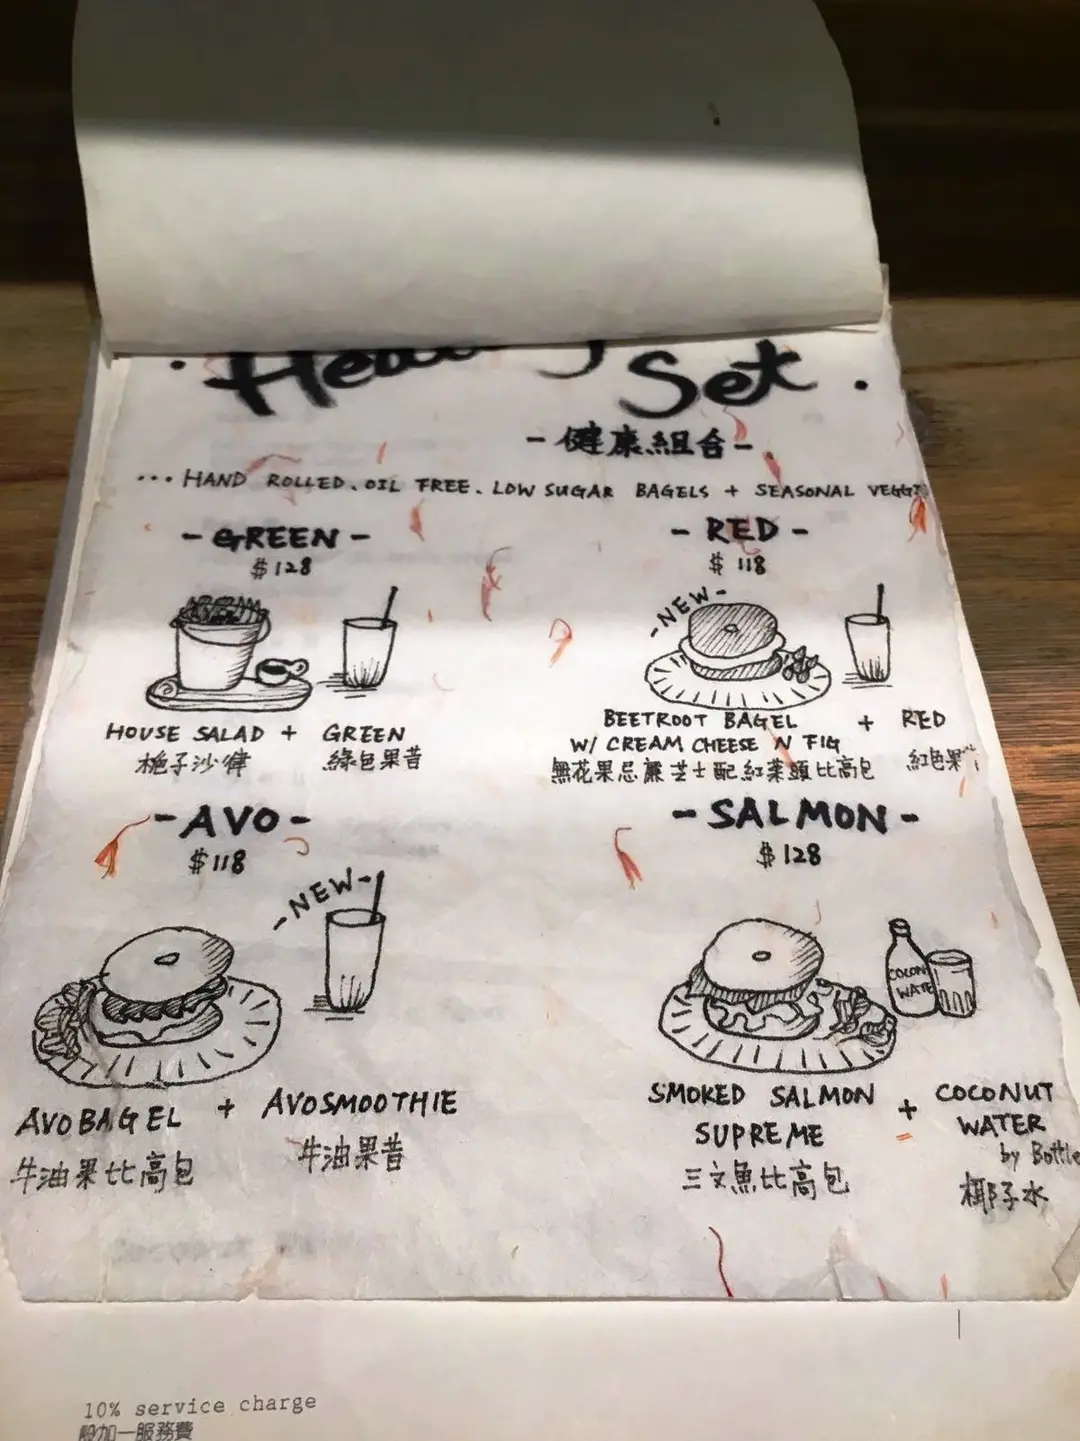 Set
- 健康組合 -
... HAND ROLLED. OIL FREE. LOW SUGAR BAGELS + SEASONAL
- GREEN -
$128
HOUSE SALAD + GREEN
梔子沙律 綠色果昔
- RED -
$118
- NEW -
BEETROOT BAGEL + RED
W/ CREAM CHEESE N FIG
無花果忌廉芝士配紅菜頭比高包 紅色果
- AVO -
$118
- NEW -
AVOBAGEL + AVOSMOOTHIE
牛油果比高包 牛油果昔
- SALMON -
$128
SMOKED SALMON SUPREME + COCONUT WATER
by Bottle
三文魚比高包 椰子水
10% service charge
設加一服務費